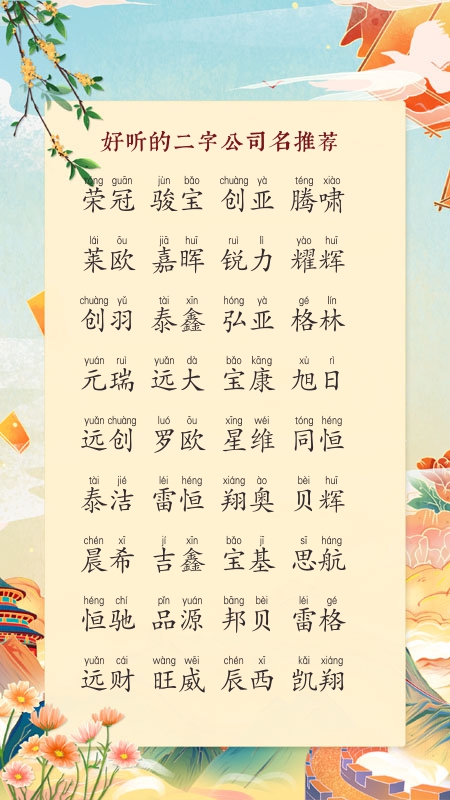 好听的二字公司名推荐
róng guān jùn bǎo chuàng yà téng xiào
荣冠 骏宝 创亚 腾啸
lái ōu jiā huī ruì lì yào huī
莱欧 嘉晖 锐力 耀辉
chuàng yǔ tài xīn hóng yà gé lín
创羽 泰鑫 弘亚 格林
yuán ruì yuǎn dà bǎo kāng xù rì
元瑞 远大 宝康 旭日
yuǎn chuàng luó ōu xīng wéi tóng héng
远创 罗欧 星维 同恒
tài jié léi héng xiáng ào bèi huī
泰洁 雷恒 翔奥 贝辉
chén xī jí xīn bǎo jī sī háng
晨希 吉鑫 宝基 思航
héng chí pǐn yuán bāng bèi léi gé
恒驰 品源 邦贝 雷格
yuǎn cái wàng wēi chén xī kǎi xiáng
远财 旺威 辰西 凯翔